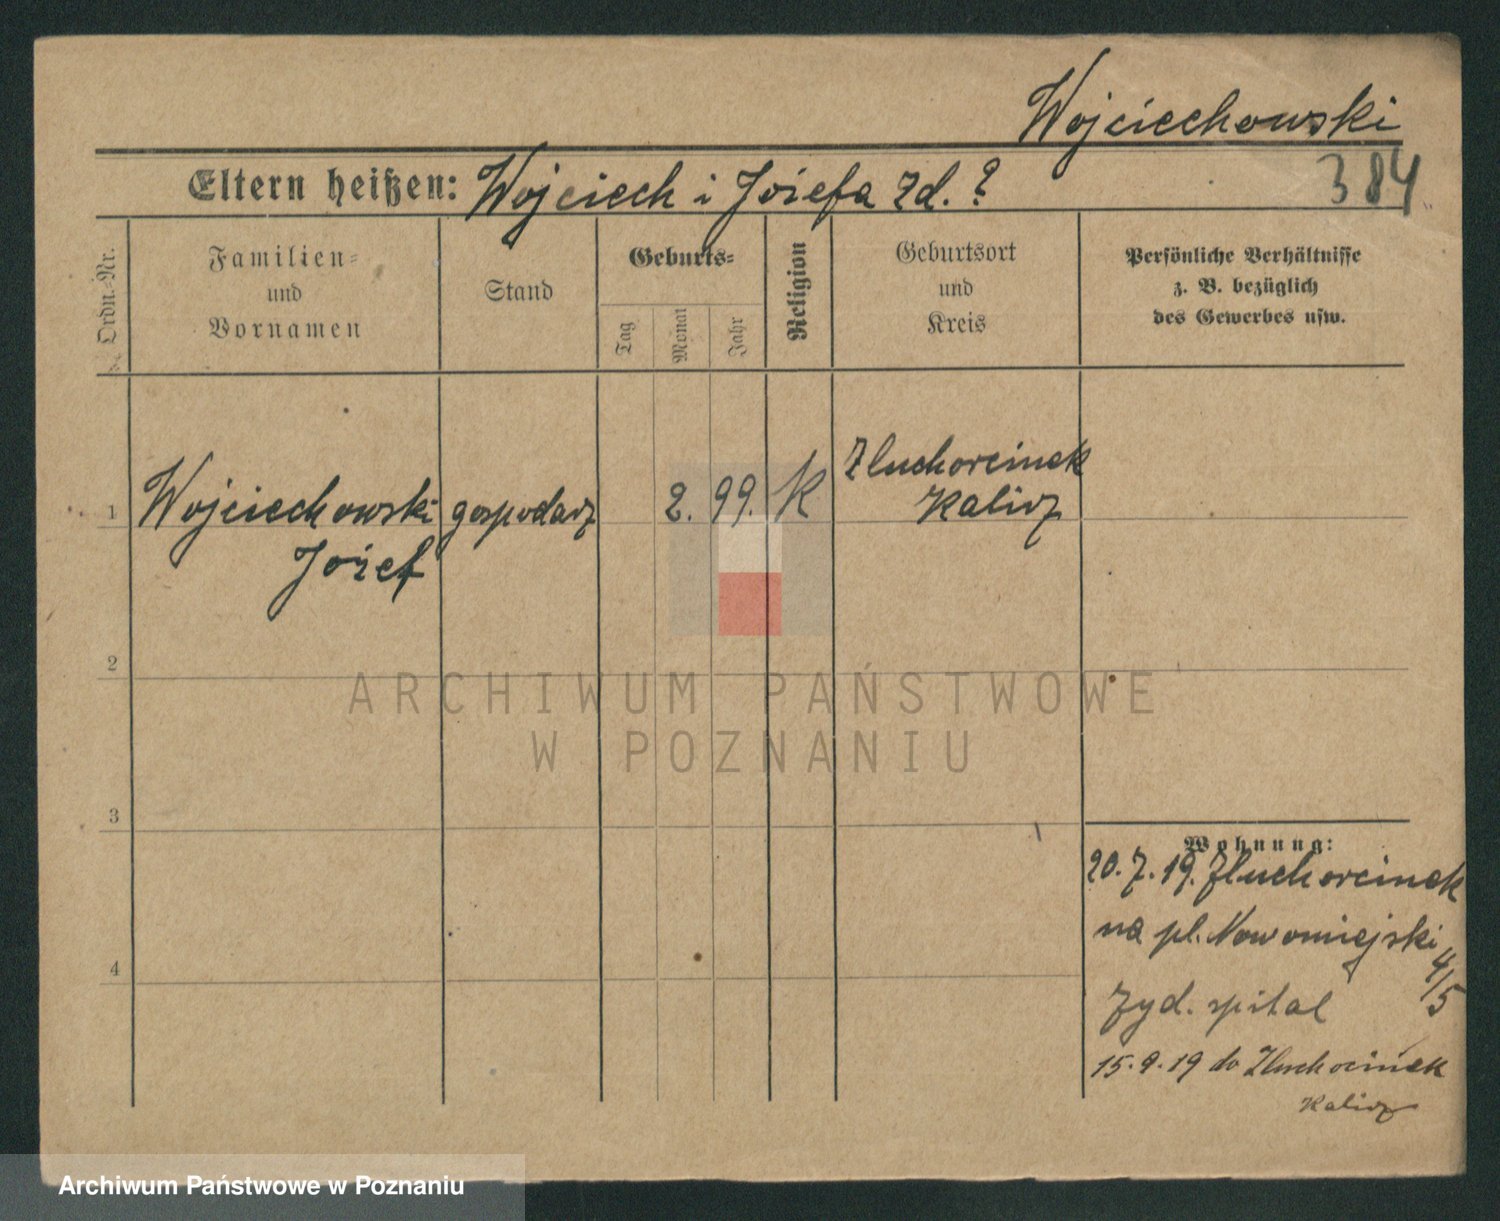 Wojciechowski
Eltern heißen: Wojciech i Józefa zd. ?
384
Ordn.-Nr.
Familien-
und
Vornamen
Stand
Geburts-
Tag
Monat
Jahr
Religion
Geburtsort
und
Kreis
Persönliche Verhältnisse
z. B. bezüglich
des Gewerbes usw.
1
Wojciechowski
Józef
gospodarz
2. 99.
K
Zluchorcinek
Kalisz
2
ARCHIWUM PAŃSTWOWE
W POZNANIU
3
Wohnung:
20. 7. 19. Zluchorcinek
na pl. Nowomiejski
4/5
żyd. spital
4
15. 9. 19 do Zluchocinek
Kalisz
Archiwum Państwowe w Poznaniu